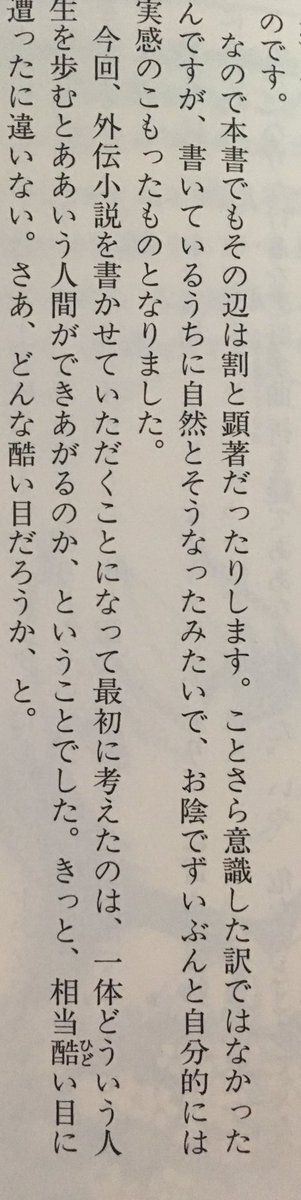 のです。
なので本書でもその辺は割と顕著だったりします。ことさら意識した訳ではなかった
んですが、書いているうちに自然とそうなったみたいで、お陰でずいぶんと自分的には
実感のこもったものとなりました。
今回、外伝小説を書かせていただくことになって最初に考えたのは、一体どういう人
生を歩むとああいう人間ができあがるのか、ということでした。きっと、相当酷い目に
ひど
遭ったに違いない。さあ、どんな酷い目だろうか、と。